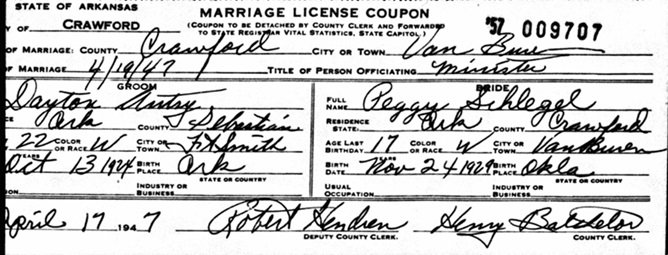 STATE OF ARKANSAS
MARRIAGE LICENSE COUPON
Y OF CRAWFORD
(COUPON TO BE DETACHED BY COUNTY CLERK AND FORWARDED
TO STATE REGISTRAR VITAL STATISTICS, STATE CAPITOL.)
'57 009707
OF MARRIAGE: COUNTY Crawford CITY OR TOWN Van Buren
OF MARRIAGE 4/19/47 TITLE OF PERSON OFFICIATING Minister
GROOM BRIDE
Dayton Autry FULL NAME Peggy Schlegel
Ark COUNTY Sebastian RESIDENCE STATE: Ark COUNTY Crawford
22 COLOR OR RACE W CITY OR TOWN Ft Smith AGE LAST BIRTHDAY 17 COLOR OR RACE W CITY OR TOWN Van Buren
Oct 13 1924 BIRTH PLACE Ark BIRTH DATE Nov 24 1929 BIRTH PLACE Okla
STATE OR COUNTRY STATE OR COUNTRY
ION INDUSTRY OR BUSINESS USUAL OCCUPATION INDUSTRY OR BUSINESS
April 17 1947 Robert Hendren Henry Batchelor
DEPUTY COUNTY CLERK. COUNTY CLERK.